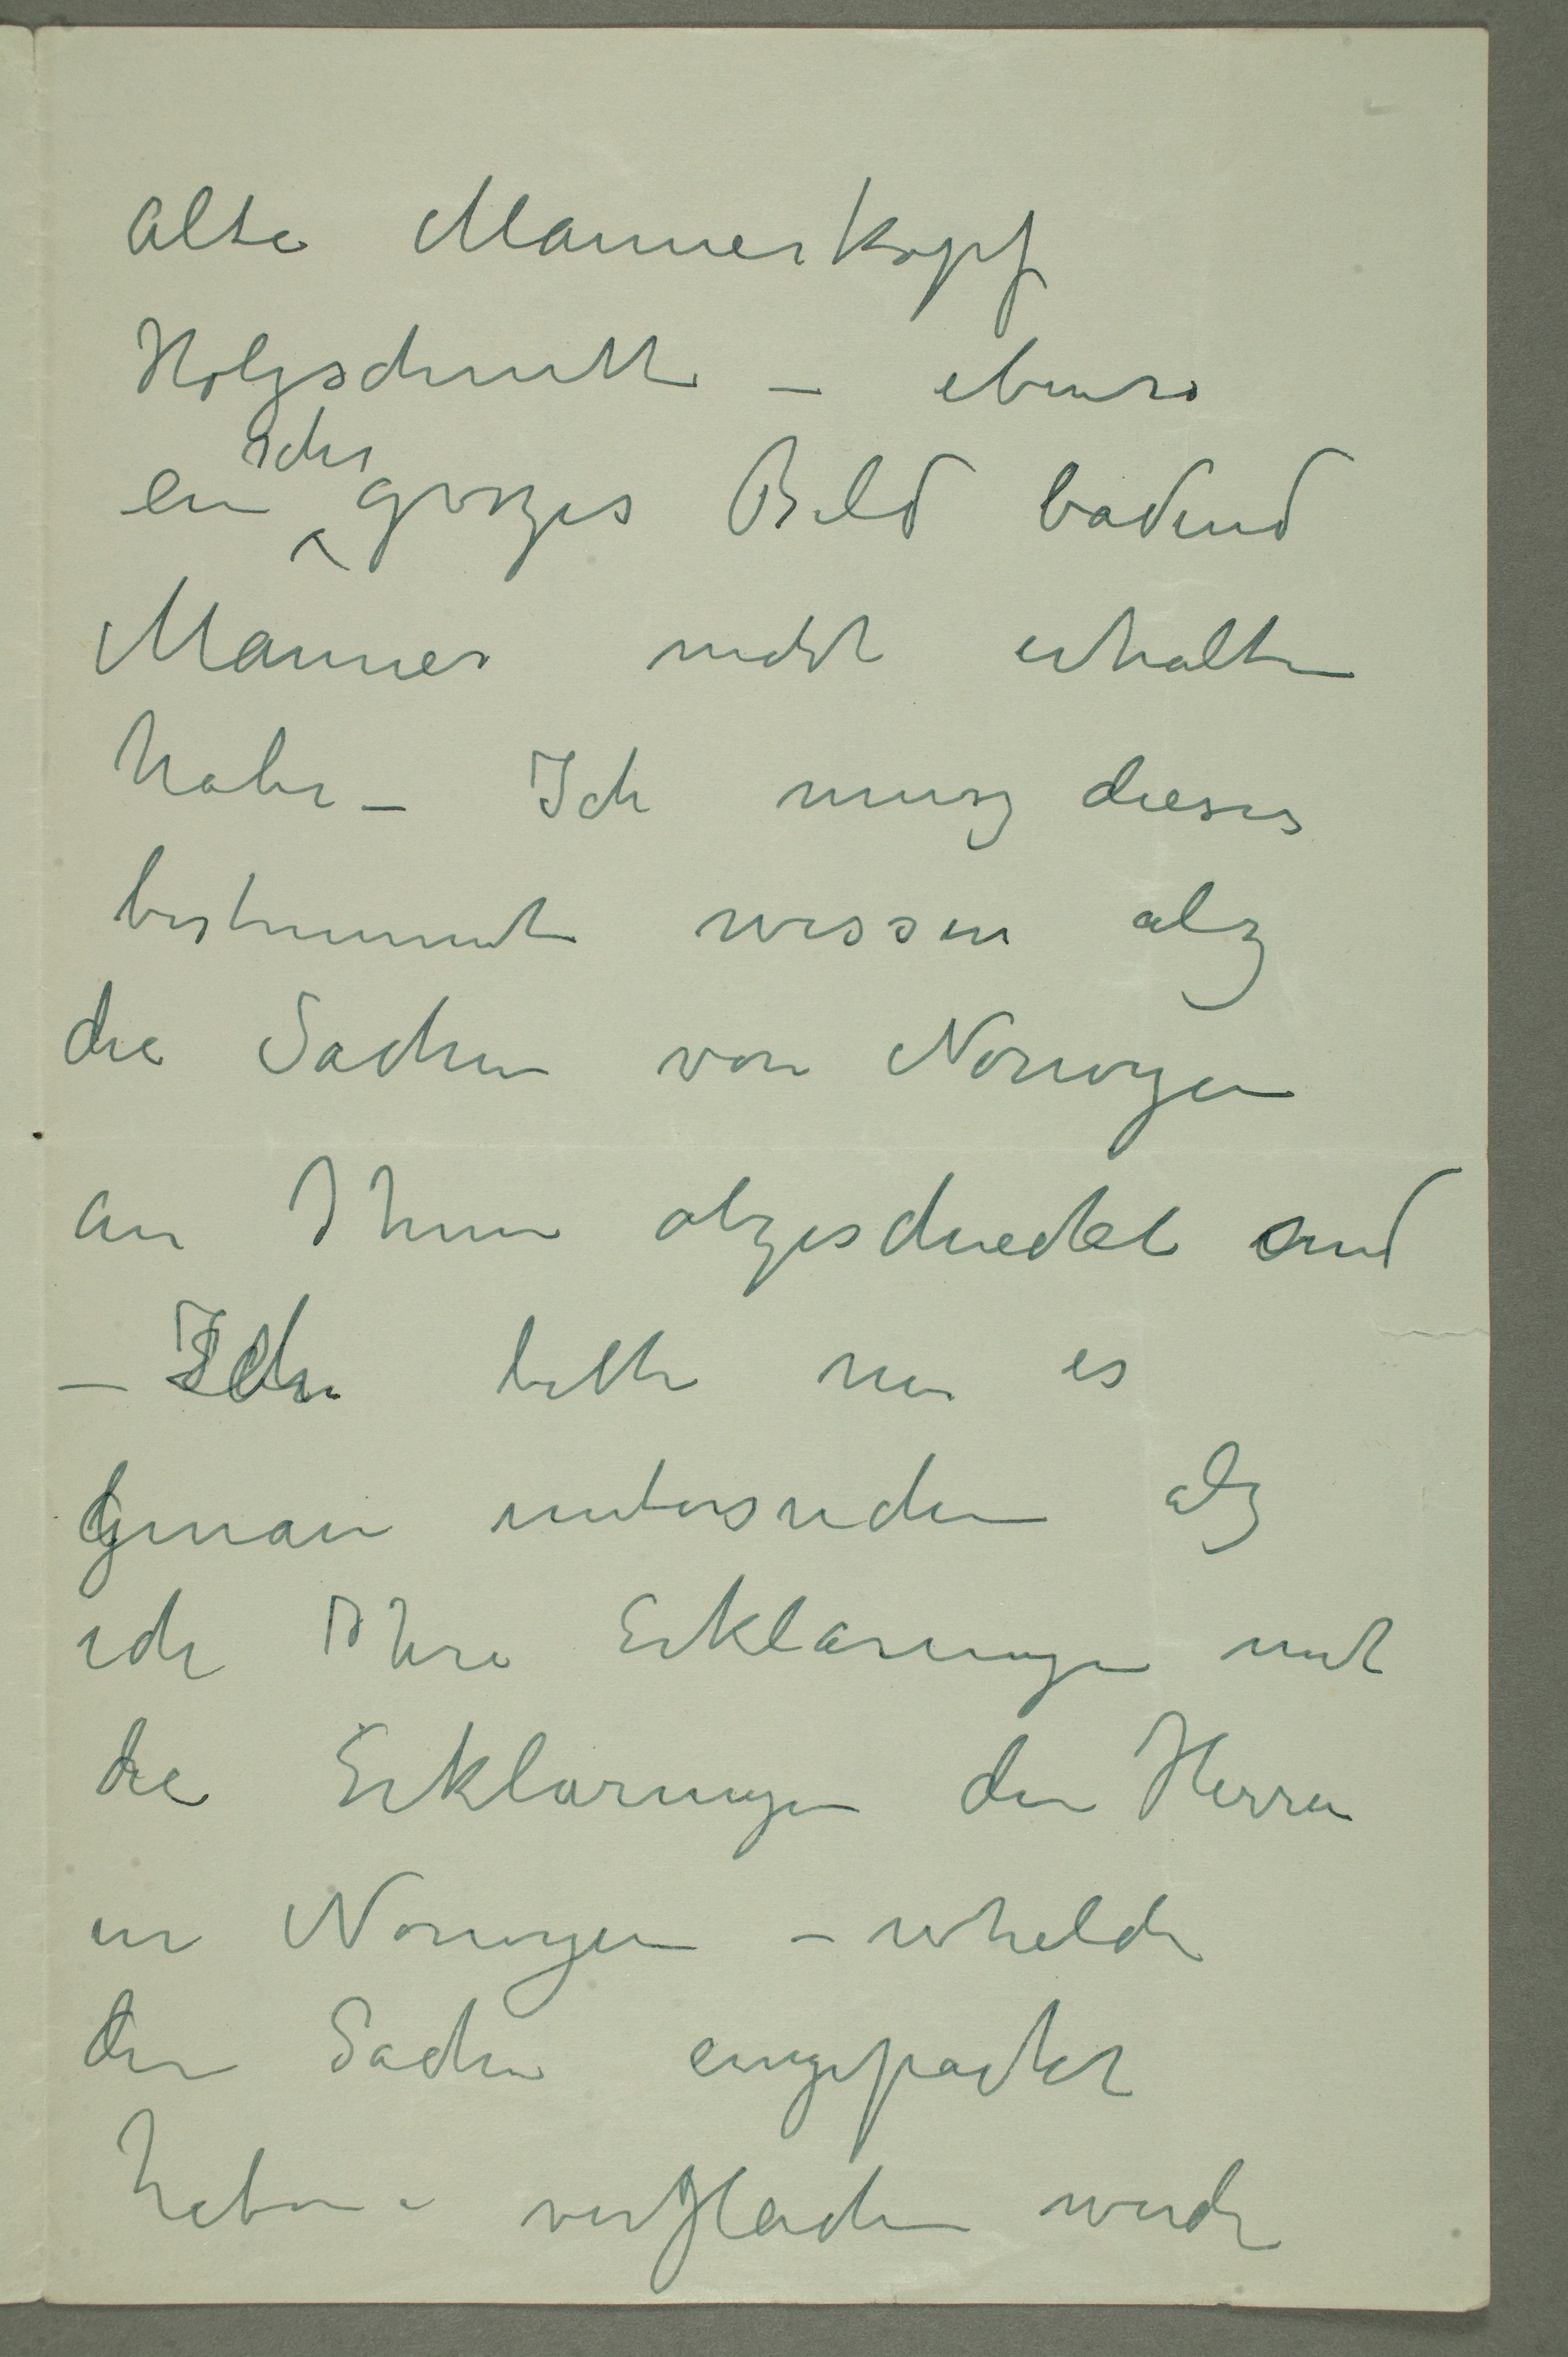 alte Mannerkopf
Holzschnitt – ebenso
ein sehr groszes Bild badend
Männer nicht erhalten
habe – Ich musz dieses
bestimmt wissen alz
die Sachen von Norwegen
an Ihnen abgeschicket sind
– Ich bitte nun es
genau untersuchen alz
ich Ihre Erklärungen mit
die Erklarungen den Herren
in Norwegen – whelche
den Sachen eingepacket
haben – vergleichen werde